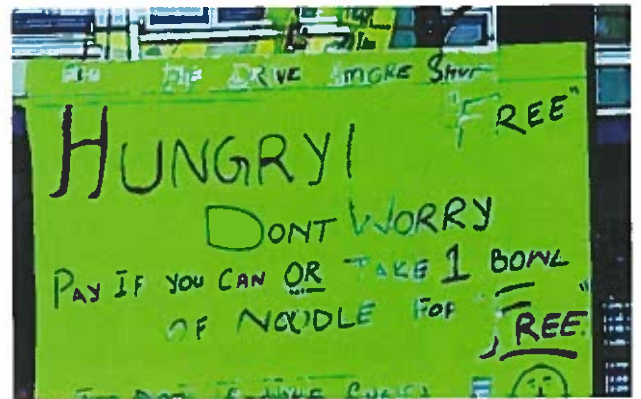 DRIVE
"FREE"
HUNGRY!
DONT WORRY
PAY IF YOU CAN OR TAKE 1 BOWL
OF NOODLE FOR "FREE"